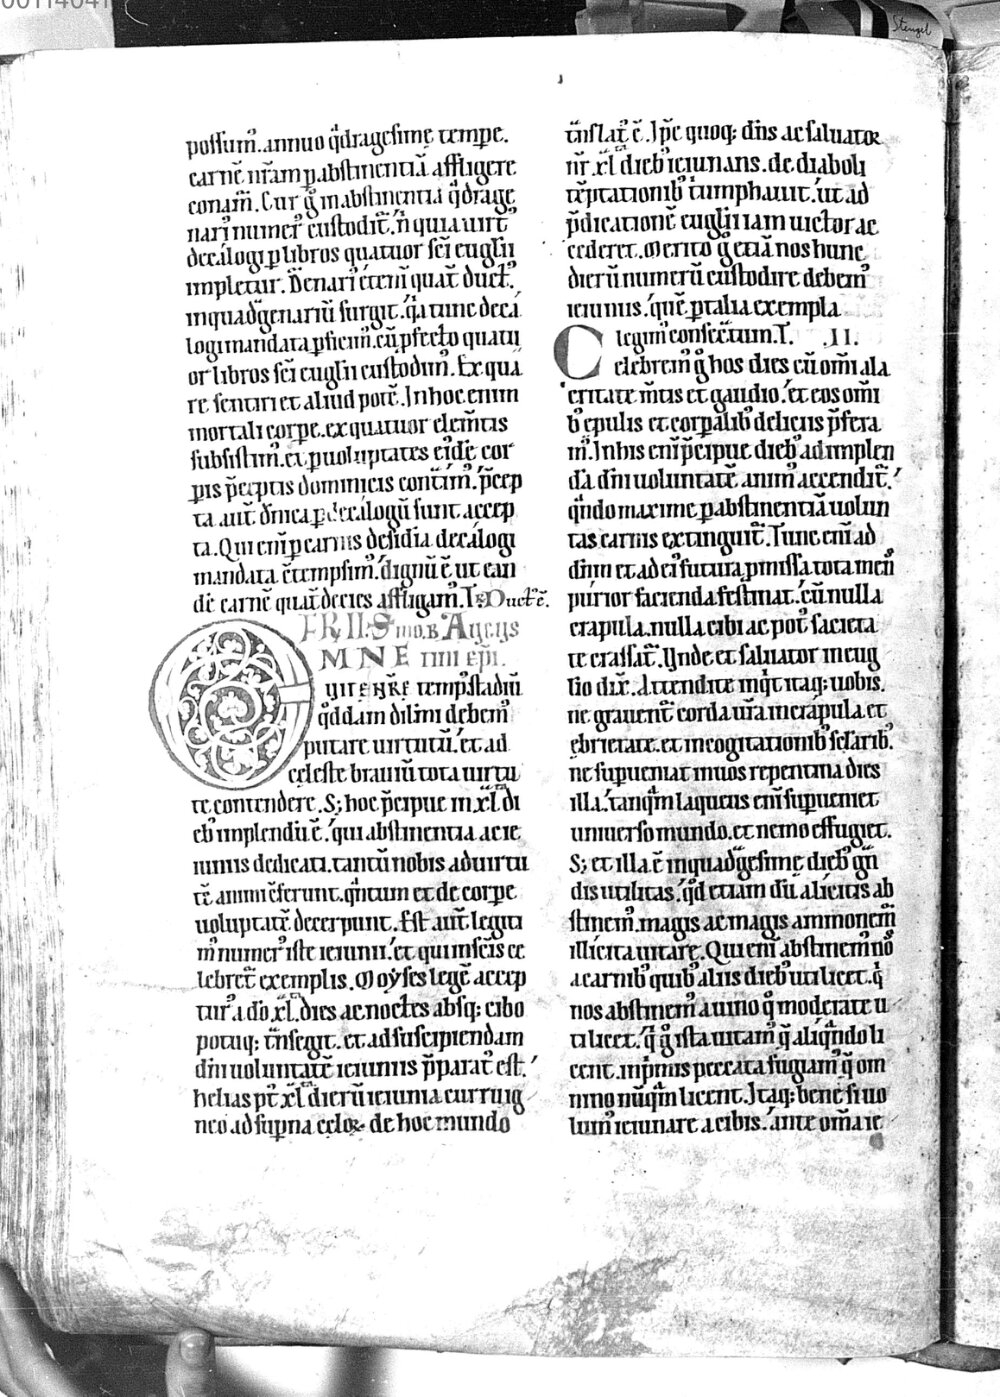 00114041
Stengel
possum᷒. annuo q̄dragesimę tempe.
carnē nr̄am ꝑ abstinentiā affligere
conam᷒. Cur ḡ in abstinentia q̄drage
narı᷒ numer᷒ custodit᷒. n̄ quia uirt᷒
decálogi ꝑ libros quatuor sc̄i euglii
impletur. Denari᷒ &eni᷒ quat᷒ duct᷒.
inquadgenariū surgit. q̄a tunc decá
logi mandata ꝑficim᷒. cū ꝑfecto quatu
or libros sc̄i euglii custodim᷒. Ex qua
re sentiri et aliud potē. In hoc enim
mortali corpe. ex quatuor elemtis
subsistim᷒. et ꝑ uoluptates eidē cor
pis p̄ceptis dominicis contim᷒. p̄cep
ta aut᷒ dn̄ica ꝑ decálogū sunt accep
ta. Qui eni ꝑ carnis desidia decálogi
mandata c̄tempsim᷒. dignū ē ut ean
dē carnē quat᷒ decies affligam᷒. T᷒. Duct᷒ ē.
FR̄. II. S mo. B. Aug.us
MNE IIII EPI.
QUI TENR̄E temp᷒. stadiū
q̄ddam dilmi debem᷒
putare uirtutū. et ad
celeste brauiū tota uirtu
te contendere. S; hoc p̄cipue in xl᷒ di
eb᷒ implendū ē. qui abstinentia ac ie
iuniis dedicati. tantū nobis ad uirtu
tē animi c̄ferunt. q̄ntum et de corpe
uoluptatū decerpunt. Est aut᷒ legiti
m᷒ numer᷒ iste ieiunii. et qui in sc̄is ce
lebret᷒ exemplis. Moẏses legē accep
tur᷒ a dō. xl᷒. dies ac noctes absq; cibo
potuq; tn̄segit. et ad suscipiendam
dn̄i uoluntatē ieiuniis p̄parat᷒ est.
helias p᷒t xl᷒ dierū ieiunia curru ig
neo ad supna celoꝝ de hoc mundo
tn̄slat᷒ ē. Ip̄e quoq; dn̄s ac saluator
nr̄ xl᷒ dieb᷒ ieiunans. de diaboli
tēptationib᷒ triumphauit. ut ad
p̄dicationē euglii iam uictor ac
cederet. Merito ḡ etiā nos hunc
dierū numerū custodire debem᷒
ieiuniis. quē ꝑ talia exempla
legim᷒ consec̄tum. T. .II.
Celebrem᷒ ḡ hos dies cū om̄i ala
critate m̄tis et gaudio. et eos om̄i
b᷒ epulis et corpalib᷒ deliciis p̄fera
m᷒. In his eni p̄cipue dieb᷒ ad implen
dā dn̄i uoluntatē anim᷒ accendit᷒.
q̄ndo maxime ꝑ abstinentiā uolun
tas carnis extinguit᷒. Tunc eni ad
dn̄m et ad ei᷒ futura ꝑmissa tota men̄s
purior facienda festinat. cū nulla
crapula. nulla cibi ac pot᷒ sacieta
te crassat᷒. Vnde et saluator in eug
lio dix᷒. Attendite inq̄t itaq; uobis.
ne grauent᷒ corda ur̄a in crápula et
ebrietate. et in cogitationib᷒ sc̄larib᷒.
ne supueniat in uos repentina dies
illa. tanq̄m laqueus eni supueniet
uniuerso mundo. et nemo effugiet.
S; et illa ē in quadgesimę dieb᷒ gn̄
dis utilitas. qd̄ etiam dū a licitis ab
stinem᷒. magis ac magis ammonem᷒
illicita uitare. Qui eni abstinem᷒ n̄o
a carnib᷒ quib᷒ aliis dieb᷒ uti licet. q̄
nos abstinem᷒ a uino q̄ moderate u
ti licet. q̄ ḡ ista uitam᷒ q̄ aliq̄ndo li
cent. inp̄mis peccata fugiam᷒ q̄ om
nino nūq̄m licent. Itaq; bene si uo
lum᷒ ieiunare a cibis. ante om̄ia ie